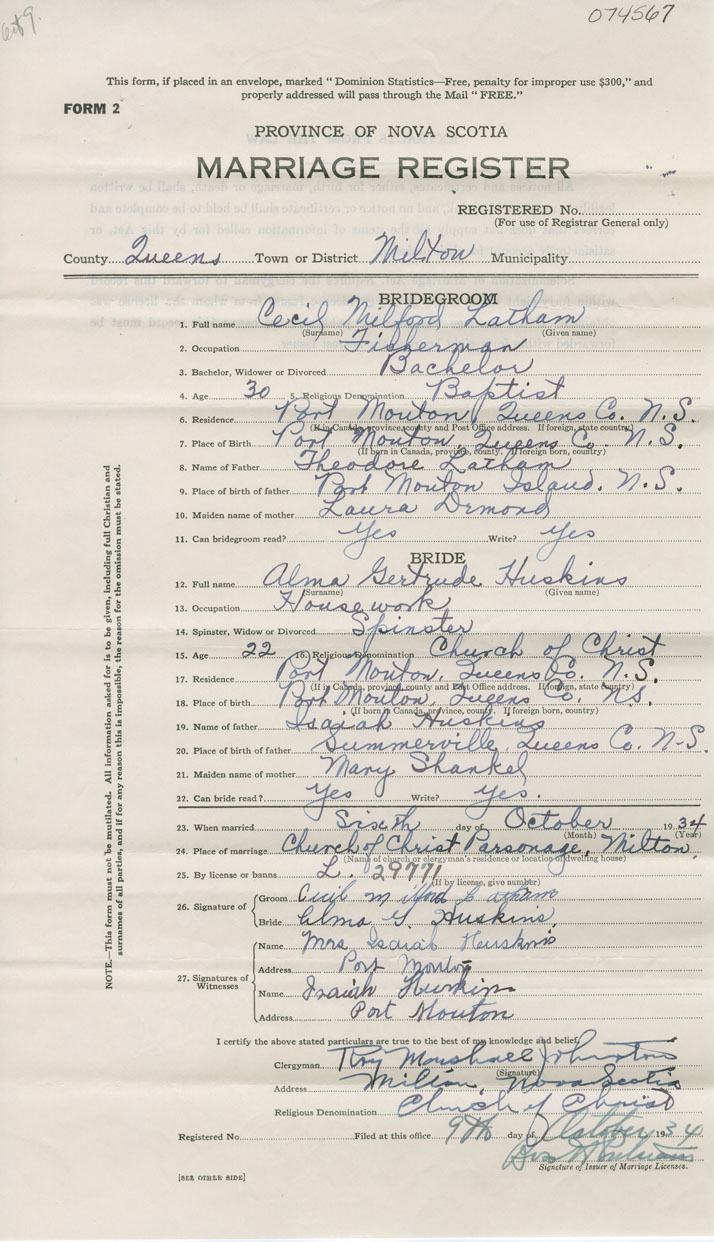 Oct 9.
074567
This form, if placed in an envelope, marked " Dominion Statistics—Free, penalty for improper use $300," and
properly addressed will pass through the Mail " FREE."
FORM 2
PROVINCE OF NOVA SCOTIA
MARRIAGE REGISTER
REGISTERED No.
(For use of Registrar General only)
County Queens Town or District Milton Municipality
BRIDEGROOM
1. Full name Cecil Milford Latham
(Surname) (Given name)
2. Occupation Fisherman
3. Bachelor, Widower or Divorced Bachelor
4. Age 30 5. Religious Denomination Baptist
6. Residence Port Mouton, Queens Co. N.S.
(If in Canada, province, county and Post Office address. If foreign, state country)
7. Place of Birth Port Mouton, Queens Co. N.S.
(If born in Canada, province, county. If foreign born, country)
8. Name of Father Theodore Latham
9. Place of birth of father Port Mouton Island. N.S.
10. Maiden name of mother Laura Drmond
11. Can bridegroom read? Yes Write? Yes
BRIDE
12. Full name Alma Gertrude Huskins
(Surname) (Given name)
13. Occupation Housework
14. Spinster, Widow or Divorced Spinster
15. Age 22 16. Religious Denomination Church of Christ
17. Residence Port Mouton, Queens Co. N.S.
(If in Canada, province, county and Post Office address. If foreign, state country)
18. Place of birth Port Mouton, Queens Co. N.S.
(If born in Canada, province, county. If foreign born, country)
19. Name of father Isaiah Huskins
20. Place of birth of father Summerville, Queens Co. N-S.
21. Maiden name of mother Mary Shankel
22. Can bride read? Yes Write? Yes.
23. When married Sixth day of October 1934
(Month) (Year)
24. Place of marriage Church of Christ Parsonage, Milton,
(Name of church or clergyman's residence or location of dwelling house)
25. By license or banns L. 29771
(If by license, give number)
26. Signature of Groom Cecil Milford Latham
Bride Alma G. Huskins,
27. Signatures of Witnesses
Name Mrs Isaiah Huskins
Address Port Mouton
Name Isaiah Huskins
Address Port Mouton
NOTE.—This form must not be mutilated. All information asked for is to be given, including full Christian and
surnames of all parties, and if for any reason this is impossible, the reason for the omission must be stated.
I certify the above stated particulars are true to the best of my knowledge and belief.
Clergyman Roy Marshall Johnston
(Signature)
Address Milton, Nova Scotia
Religious Denomination Church of Christ
Registered No. Filed at this office 9th day of October 1934
Signature of Issuer of Marriage Licenses.
[SEE OTHER SIDE]